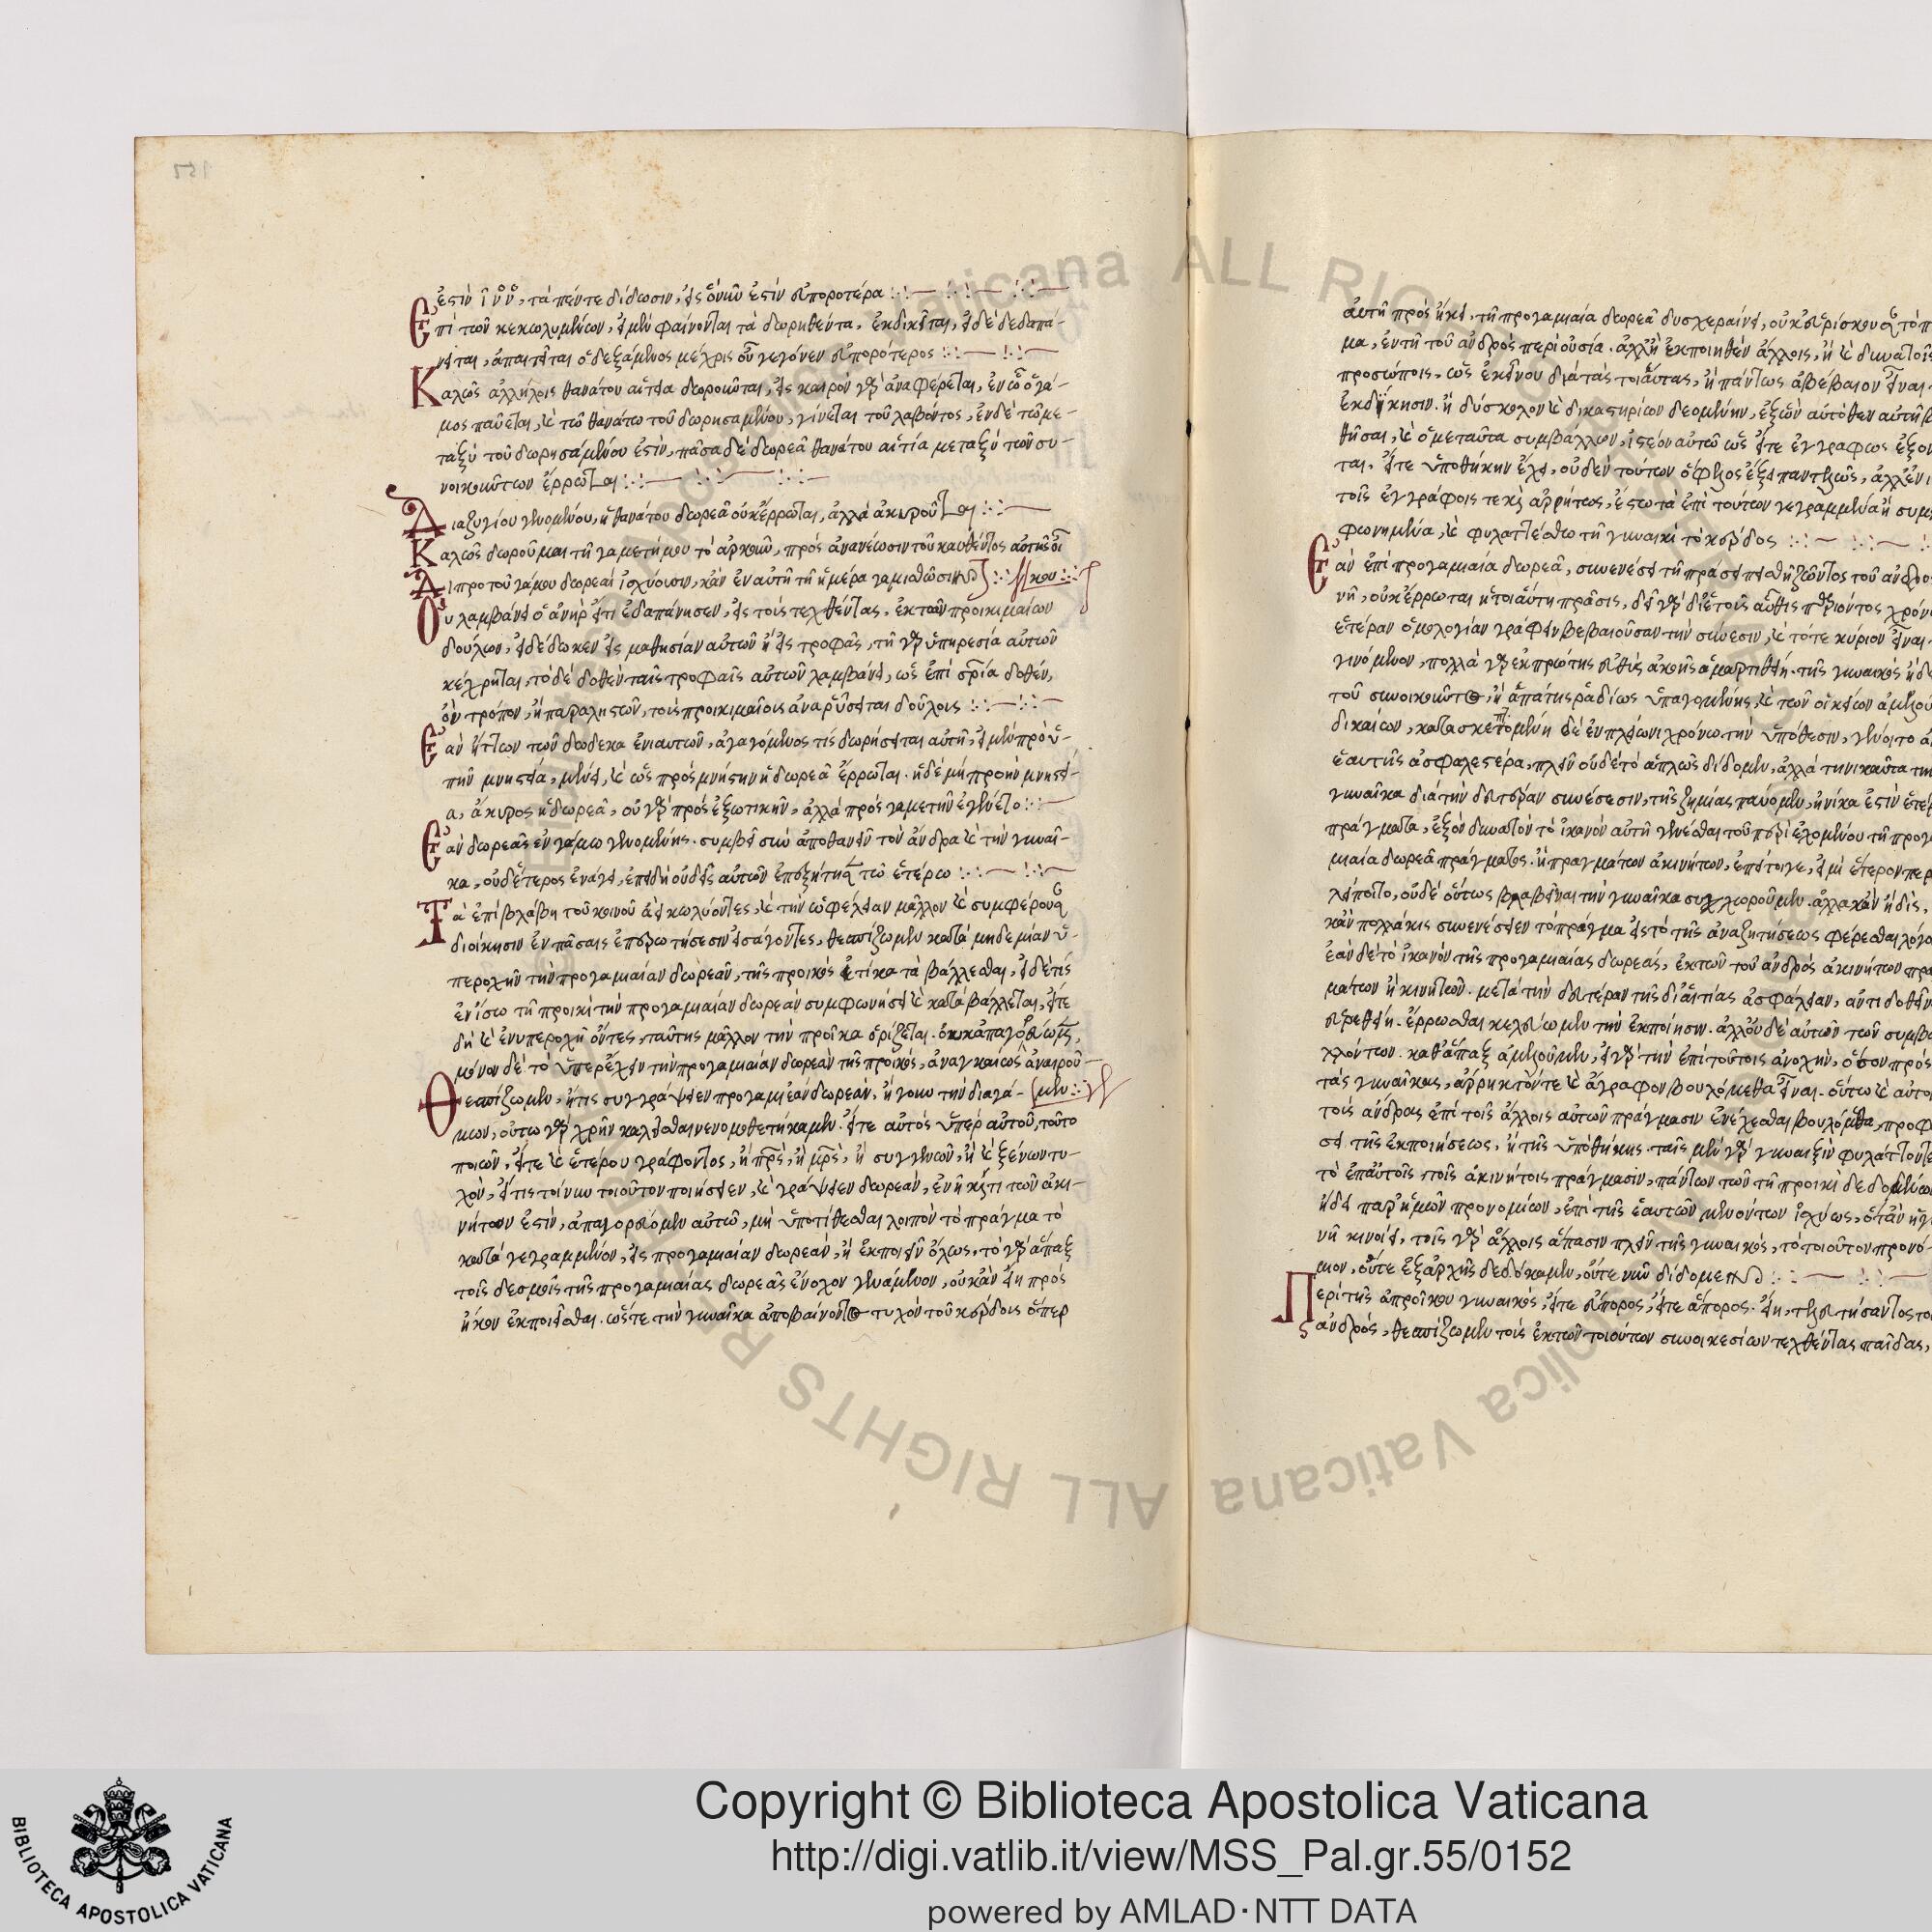 ἐστὶν ἢ νῦν, τὰ πέντε δίδωσιν, εἰς ὃ νῦν ἐστὶν εὐπορωτέρα
Ἐπὶ τῶν κεκωλυμένων, εἰ μὲν φαίνονται τὰ δωρηθέντα, ἐκδικεῖται, εἰ δὲ δεδαπά-
νηται, ἀπαιτεῖται ὁ δεξάμενος μέχρις οὗ γέγονεν εὐπορώτερος
Καλῶς ἀλλήλοις θανάτου αἰτία δωροῦνται, εἰς καιρὸν γὰρ ἀναφέρεται, ἐν ᾧ ὁ γά-
μος παύεται, καὶ τῷ θανάτῳ τοῦ δωρησαμένου, γίνεται τοῦ λαβόντος, ἐν δὲ τῷ με-
ταξὺ τοῦ δωρησαμένου ἐστίν, πᾶσα δὲ δωρεὰ θανάτου αἰτία μεταξὺ τῶν συ-
νοικούντων ἔρρωται
Διαζυγίου γενομένου, ἡ θανάτου δωρεὰ οὐκ ἔρρωται, ἀλλὰ ἀκυροῦται
Καλῶς δωροῦμαι τῇ γαμετῇ μου τὸ ἀρκοῦν, πρὸς ἀνανέωσιν τοῦ καυθέντος αὐτῆς οἴ
κου
Αἱ πρὸ τοῦ γάμου δωρεαὶ ἰσχύουσιν, κἂν ἐν αὐτῇ τῇ ἡμέρᾳ γαμιθῶσιν
Οὐ λαμβάνει ὁ ἀνὴρ εἴ τι ἐδαπάνησεν, εἰς τοὺς τεχθέντας, ἐκ τῶν προικιμαίων
δούλων, εἰ δέδωκεν εἰς μαθησίαν αὐτῶν ἢ εἰς τροφάς, τῇ γὰρ ὑπηρεσίᾳ αὐτῶν
κέχρηται, τὸ δὲ δοθὲν ταῖς τροφαῖς αὐτῶν λαμβάνει, ὡς ἐπὶ
ὃν τρόπον, ἢ παρὰ λῃστῶν, τοὺς προικιμαίους ἀναρύσεται δούλους
Ἐὰν ἥττων τῶν δώδεκα ἐνιαυτῶν, ἀγαγόμενος τὶς δωρήσεται αὐτῇ, εἰ μὲν πρὸ ὑ-
πῆν μνηστεία, μένει, καὶ ὡς πρὸς μνηστὴν ἡ δωρεὰ ἔρρωται. ἡ δὲ μὴ προῆν μνηστεί-
α, ἄκυρος ἡ δωρεά, οὐ γὰρ πρὸς ἐξωτικήν, ἀλλὰ πρὸς γαμετὴν ἐγένετο
Ἐὰν δωρεᾶς ἐν γάμῳ γενομένης. συμβεῖ συναποθανεῖν τὸν ἄνδρα καὶ τὴν γυναῖ-
κα, οὐδέτερος ἐνάγει, ἐπειδὴ οὐδεὶς αὐτῶν ἐπεζήτησε τῷ ἑτέρῳ
Τὰ ἐπὶ βλάβῃ τοῦ κοινοῦ ἀεὶ κωλύοντες, καὶ τὴν ὠφέλειαν μᾶλλον καὶ συμφέρουσαν
διοίκησιν ἐν πάσαις ἐπερωτήσεσιν εἰσάγοντες, θεσπίζωμεν κατὰ μηδεμίαν ὑ-
περοχὴν τὴν προγαμιαίαν δωρεάν, τῆς προικὸς ἔτι κατὰ βάλλεσθαι, εἰ δέ τις
ἐν ἴσῳ τῇ προικὶ τὴν προγαμιαίαν δωρεὰν συμφωνήσει καὶ καταβάλλεται, εἴτε
δὴ καὶ ἐν ὑπεροχῇ ὄντες, ταύτης μᾶλλον τὴν προῖκα ὁρίζεται. οὐκ ἀπαγορεύωμεν,
μόνον δὲ τὸ ὑπερέχειν τὴν προγαμιαίαν δωρεὰν τῆς προικός, ἀναγκαίως ἀναιροῦ-
μεν
Θεσπίζωμεν, ἥτις συγγράψειεν προγαμιέαν δωρεάν, ἤγουν τὴν διὰ γά-
μων, οὕτω γὰρ χρῆν καλεῖσθαι νενομοθετήκαμεν. εἴτε αὐτὸς ὑπὲρ αὑτοῦ, τοῦτο
ποιῶν, εἴτε καὶ ἑτέρου γράφοντος, ἢ πρς, ἢ μρς, ἢ συγγενῶν, ἢ καὶ ξένων τυ-
χόν, εἴ τις τοίνυν τοιοῦτον ποιήσειεν, καὶ γράψειεν δωρεάν, ἐν ᾗ καί τι τῶν ἀκι-
νήτων ἐστίν, ἀπαγορεύομεν αὐτῷ, μὴ ὑποτίθεσθαι λοιπὸν τὸ πρᾶγμα τὸ
καταγεγραμμένον, εἰς προγαμιαίαν δωρεάν, ἢ ἐκποιεῖν ὅλως, τὸ γὰρ ἅπαξ
τοῖς δεσμοῖς τῆς προγαμιαίας δωρεᾶς ἔνοχον γενάμενον, οὐκ ἂν εἴη πρὸς
ἧκον ἐκποιεῖσθαι. ὥστε τὴν γυναῖκα ἀποβαίνοντος τυχὸν τοῦ κέρδους ὅπερ
αὐτῇ πρὸς ἥκει. τῇ προγαμιαίᾳ δωρεᾷ δυσχεραίνει, οὐκ εὑρίσκουσα τὸ π
μα, ἐν τῇ τοῦ ἀνδρὸς περιουσίᾳ. ἀλλ᾽ ἢ ἐκποιηθὲν ἄλλοις, ἢ καὶ δυνατοῖς
προσώποις, ὡς ἐκείνου διὰ τὰς τοιαύτας, ἢ πάντως ἀβέβαιον εἶναι
ἐκδίκησιν. ἢ δύσκολον καὶ δικαστηρίων δεομένην, ἐξ ὧν αὐτόθεν αὐτῇ β
θῆσαι, καὶ ὁ μεταῦτα συμβάλλων, ἰστέον αὐτῷ ὡς εἴτε ἐγγράφως ἐξον
ται, εἴτε ὑποθήκην ἔχει, οὐδὲν τούτων ὄφελος ἕξει παντελῶς, ἀλλ᾽ ἐν
τοῖς ἐγγράφοις τε καὶ ἀρρήτως, ἔστω τὰ ἐπὶ τούτων γεγραμμένα ἢ συμ
φωνημένα, καὶ φυλαττέσθω τῇ γυναικὶ τὸ κέρδος
Ἐὰν ἐπὶ προγαμιαίᾳ δωρεᾷ, συνενέσει τῇ πράσει πεισθῇ ζῶντος τοῦ ἀνδρὸς
νή, οὐκ ἔρρωται ἡ τοιαύτη πρᾶσις, δεῖ γὰρ διετοῦς αὖθις περιόντος χρόν
ἑτέραν ὁμολογίαν γράφειν βεβαιοῦσαν τὴν σύνεσιν, καὶ τότε κύριον εἶναι
γινόμενον, πολλὰ γὰρ ἐκ πρώτης εὐθὺς ἀκοῆς ἁμαρτηθείη. τῆς γυναικὸς ἡδέ
τοῦ συνοικοῦντος, ἢ ἀπάτης ῥᾳδίως ὑπαγομένης, καὶ τῶν οἰκείων ἀμελού
δικαίων, κατασκεπτομένη δὲ ἐν πλείωνι χρόνῳ τὴν ὑπόθεσιν, γένοιτο ἂ
ἑαυτῆς ἀσφαλεστέρα, πλὴν οὐδὲ τὸ ἁπλῶς δίδομεν, ἀλλὰ τηνικαῦτα τὴν
γυναῖκα διὰ τὴν δευτέραν συνέσεσιν, τῆς ζημίας παύομεν, ἡνίκα ἐστὶν ἕτερ
πράγματα, ἐξ ὧν δυνατὸν τὸ ἱκανὸν αὐτῇ γενέσθαι τοῦ περιεχομένου τῇ προγα
μιαίᾳ δωρεᾷ πράγματος. ἢ πραγμάτων ἀκινήτων, ἐπείτοιγε, εἰ μὴ ἕτερον περ
λείποιτο, οὐδὲ οὕτως βλαβῆναι τὴν γυναῖκα συγχωροῦμεν. ἀλλὰ κἂν ἢ δίς,
κἂν πολλάκις συνενέσειεν τὸ πρᾶγμα εἰς τὸ τῆς ἀναζητήσεως φέρεσθαι λόγο
ἐὰν δὲ τὸ ἱκανὸν τῆς προγαμιαίας δωρεᾶς, ἐκ τῶν τοῦ ἀνδρὸς ἀκινήτων πρα
μάτων ἢ κινητῶν. μετὰ τὴν δευτέραν τῆς διαιτίας ἀσφάλειαν, ἀντιδοθῆν
εὑρεθείη. ἐρρῶσθαι κελεύωμεν τὴν ἐκποίησιν. ἀλλ᾽ οὐδὲ αὐτῶν τῶν συμβα
λλόντων. καθάπαξ ἀμελοῦμεν, εἰ γὰρ τὴν ἐπὶ τούτοις ἀνοχήν, ὅσον πρὸς
τὰς γυναῖκας, ἄρρηκτόν τε καὶ ἄγραφον βουλόμεθα εἶναι. οὕτω καὶ αὐτοὺ
τοὺς ἄνδρας ἐπὶ τοῖς ἄλλοις αὐτῶν πράγμασιν ἐνέχεσθαι βουλόμεθα, προφ
σει τῆς ἐκποιήσεως, ἢ τῆς ὑποθήκης. ταῖς μὲν γὰρ γυναιξὶν φυλάττοντε
τὸ ἐπ᾽ αὐτοῖς τοῖς ἀκινήτοις πράγμασιν, πάντων τῶν τῇ προικὶ δεδομένων
ἤδει παρ᾽ ἡμῶν προνομίων, ἐπὶ τῆς ἑαυτῶν μενόντων ἰσχύως, ὅταν ἡ γ
νὴ κινοίει, τοῖς γὰρ ἄλλοις ἅπασιν πλὴν τῆς γυναικός, τὸ τοιοῦτον προνό-
μιον, οὔτε ἐξ ἀρχῆς δεδόκαμεν, οὔτε νῦν δίδομεν
Περὶ τῆς ἀπροίκου γυναικός, εἴτε εὔπορος, εἴτε ἄπορος. εἴη, τελευτήσαντος το
ἀνδρός, θεσπίζωμεν τοὺς ἐκ τῶν τοιούτων συνοικεσίων τεχθέντας παῖδας,
Copyright © Biblioteca Apostolica Vaticana
http://digi.vatlib.it/view/MSS_Pal.gr.55/0152
powered by AMLAD·NTT DATA
BIBLIOTECA APOSTOLICA VATICANA